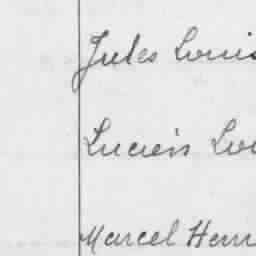 Jules Louis
Lucien Lou
Marcel Henr